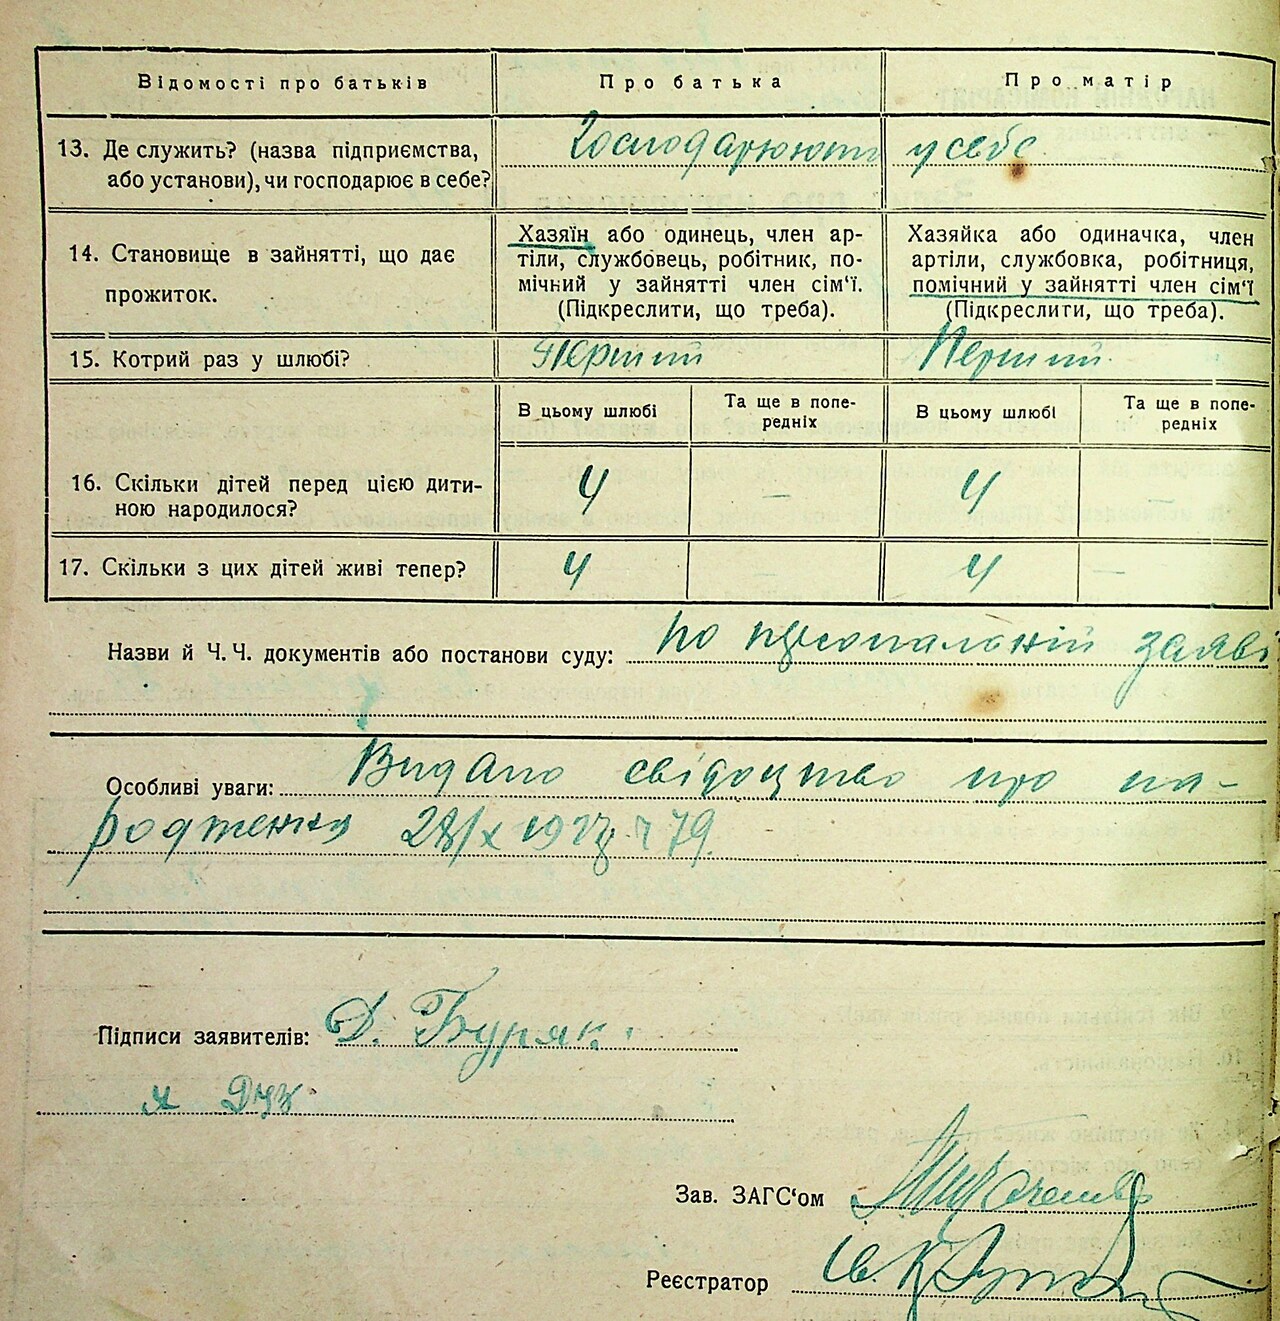 Відомості про батьків Про батька Про матір
13. Де служить? (назва підприємства, Господарюють у себе
або установи), чи господарює в себе?
14. Становище в зайнятті, що дає
прожиток.
Хазяїн або одинець, член ар-
тілі, службовець, робітник, по-
мічний у зайнятті член сім‘ї.
(Підкреслити, що треба).
Хазяйка або одиначка, член
артілі, службовка, робітниця,
помічний у зайнятті член сім‘ї
(Підкреслити, що треба).
15. Котрий раз у шлюбі? Перший Перший
В цьому шлюбі Та ще в попе-
редніх
В цьому шлюбі Та ще в попе-
редніх
16. Скільки дітей перед цією дити- 4 — 4 —
ною народилося?
17. Скільки з цих дітей живі тепер? 4 — 4 —
Назви й Ч. Ч. документів або постанови суду: по персональній заяві
Особливі уваги: Видано свідоцтво про на-
родження 28/X 1927 ч 79.
Підписи заявителів: Д. Буряк.
я Дуз
Зав. ЗАГС‘ом
Реєстратор